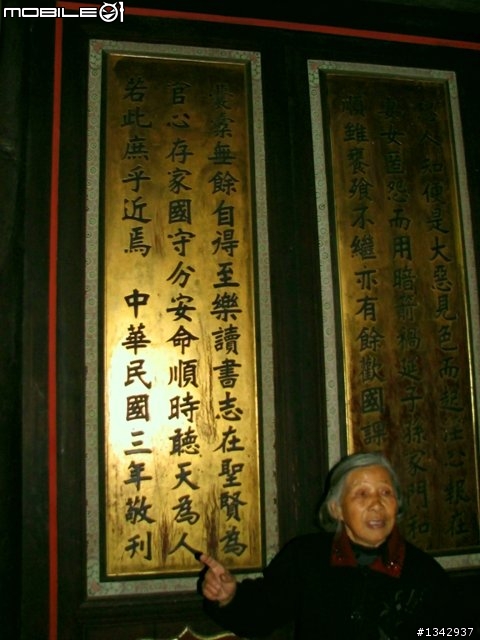 恐人知便是大惡見色而起淫心報在
妻女匿怨而用暗箭禍延子孫家門和
順雖饔飧不繼亦有餘歡國課
囊橐無餘自得至樂讀書志在聖賢為
官心存家國守分安命順時聽天為人
若此庶乎近焉 中華民國三年敬刊
MOBILE01
#1342937